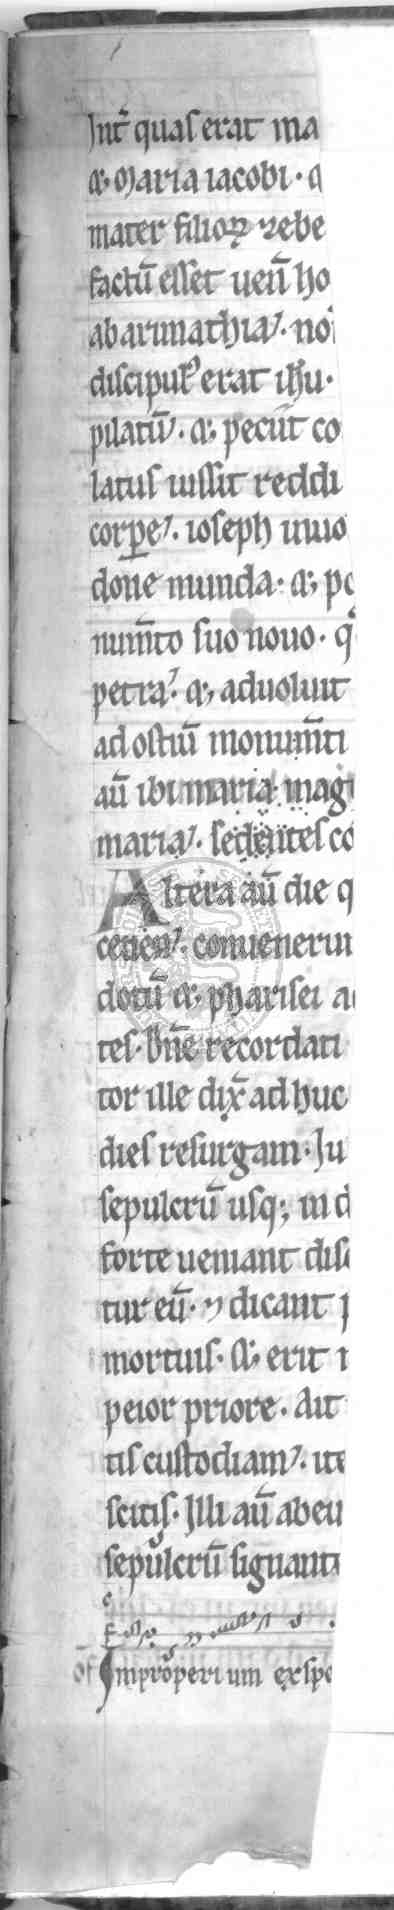 Int̄ quas erat ma
&; Maria iacobi · q
mater filioꝝ zebe
factū esset uen̄ ho
ab arimathia · no
discipul' erat ih̄u ·
pilatū · &; peciit co
latus iussit reddi
corpe · ioseph inuo
done munda · &; po
num̄to suo nouo · q
petra · &; aduoluit
ad ostiū monum̄ti
aū ibi maria mag
maria · sedentes co
Altera aū die q
ceuen · conuenerun
dotū &; pharisei a
tes · dn̄e recordati
tor ille dix̄ adhuc
dies resurgam · Iu
sepulcrū usq; in d
forte ueniant disc
tur eū · ⁊ dicant p
mortuis · &; erit n
peior priore · Ait
tis custodiam · ite
scitis · Illi aū abeu
sepulcrū signant
of Improperium exspe